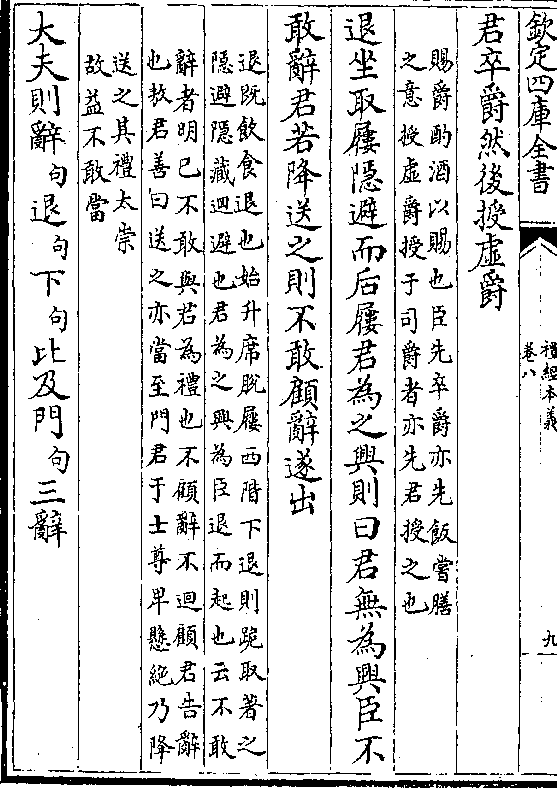 欽定四庫全書
禮經本義
卷八
九
君卒爵然後授虛爵
賜爵酌酒以賜也臣先卒爵亦先飯嘗膳
之意授虛爵授于司爵者亦先君授之也
退坐取屨隱避而后屨君為之興則曰君無為興臣不
敢辭君若降送之則不敢顧辭遂出
退旣飲食退也始升席脫屨西階下退則跪取著之
隱避隱藏迴避也君為之興為臣退而起也云不敢
辭者明已不敢與君為禮也不顧辭不迴顧君告辭
也敖君善曰送之亦當至門君于士尊卑懸絶乃降
送之其禮太崇
故益不敢當
大夫則辭句退句下句比及門句三辭